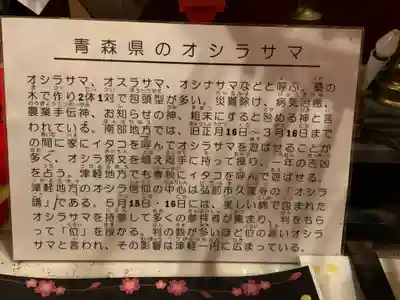 青森県のオシラサマ
オシラサマ、オスラサマ、オシナサマなどと呼ぶ。桑の
木で作り2体1対で包頭型が多い。災難除け、病気治癒、
農業手伝神、お知らせの神、粗末にすると咎める神と言
われている。南部地方では、旧正月16日~3月16日まで
の間に家にイタコを呼んでオシラサマを遊ばせることが
多く、オシラ祭文を唱え両手に持って操り、一年の吉凶
を占う。津軽地方でも春秋にイタコを呼んで遊ばせる。
津軽地方のオシラ信仰の中心は弘前市久渡寺の「オシラ
講」である。5月15日・16日には、美しい錦で包まれた
オシラサマを持参して多くの参拝者が集まり、判をもら
って「位」を授かる。判の数が多いほど位の高いオシラ
サマと言われ、その影響は津軽一円に広まっている。